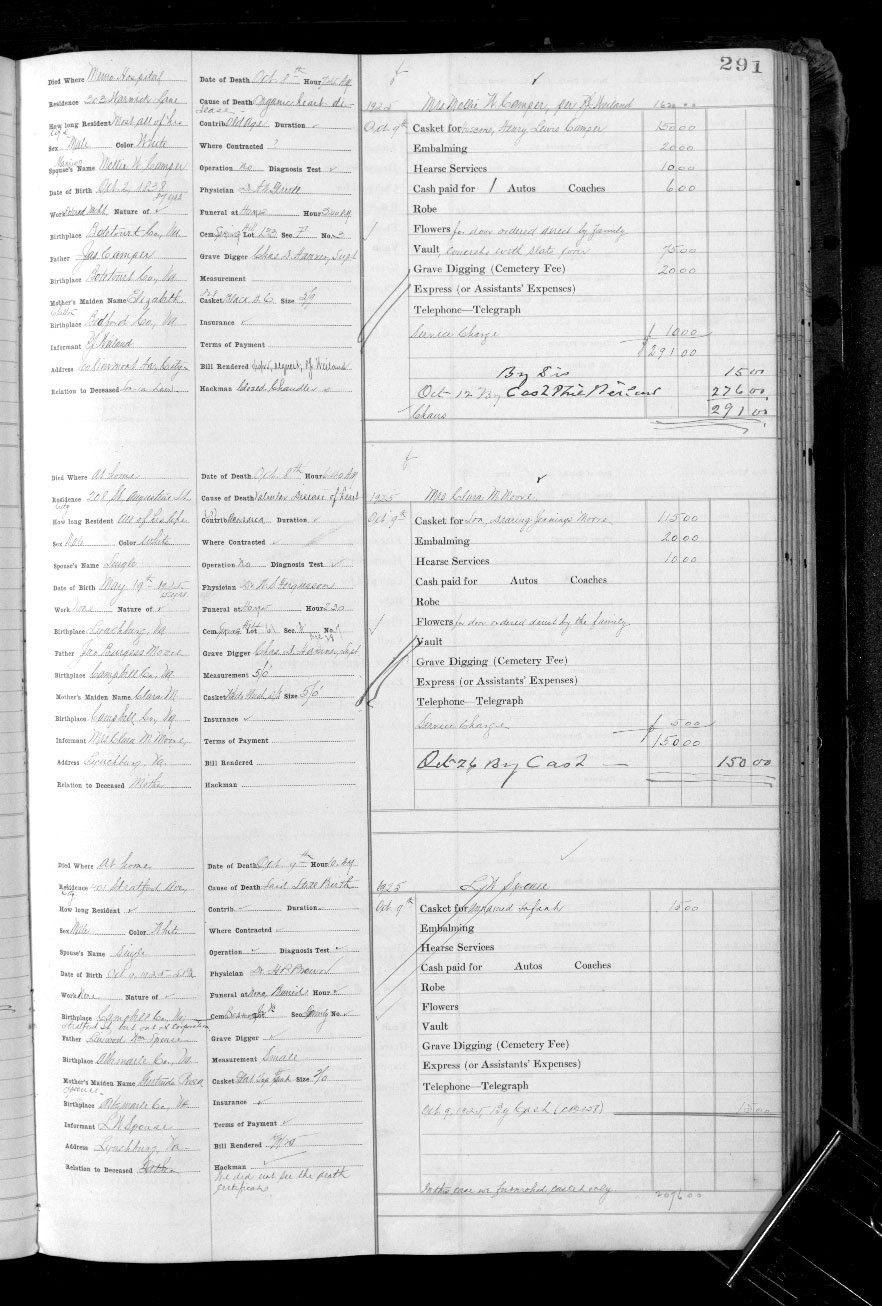 291
Died Where Memo Hospital
Residence 303 Warwick Lane
How long Resident Most all of his life
Sex Male Color White
Married
Spouse's Name Nettie W. Camper
Date of Birth Oct 2, 1838
87 yrs
Work Retired Nature of ✓
Birthplace Botetourt Co, Va
Father Jas Camper
Birthplace Botetourt Co, Va
Mother's Maiden Name Elizabeth
Birthplace Bedford Co, Va
Informant
Address Rivermont Ave City
Relation to Deceased Son in law
Date of Death Oct 8th Hour
Cause of Death Organic heart disease
Contrib. Old Age Duration ✓
Where Contracted ?
Operation No Diagnosis Test ✓
Physician
Funeral at Home Hour
Cem. Spring Lot 133 Sec. 7 No. 3
Grave Digger Chas
Measurement
Casket Size
Insurance ✓
Terms of Payment
Bill Rendered
Hackman Closed Chandler
1925 Mrs Nettie W. Camper, per
Oct 9th Casket for Henry Lewis Camper 150 00
Embalming 20 00
Hearse Services 10 00
Cash paid for 1 Autos Coaches 6 00
Robe
Flowers for door ordered direct by family
Vault 75 00
Grave Digging (Cemetery Fee) 20 00
Express (or Assistants' Expenses)
Telephone—Telegraph
Service Charge 10 00
$291 00
By Dis 15 00
Oct 12 By Cash 276 00
Chairs 291 00
Died Where At home
Residence 208 St. Augustine St.
City
How long Resident All of his life
Sex Male Color White
Spouse's Name Single
Date of Birth May 19th
Work None Nature of ✓
Birthplace Lynchburg, Va
Father Jas Burgess Moore
Birthplace Campbell Co, Va
Mother's Maiden Name Clara M.
Birthplace Campbell Co, Va
Informant Mrs Clara M. Moore
Address Lynchburg, Va.
Relation to Deceased Mother
Date of Death Oct. 8th Hour
Cause of Death Valvular Disease of heart
Contrib. Duration ✓
Where Contracted ✓
Operation No Diagnosis Test ✓
Physician Dr
Funeral at Home Hour 2:30
Cem. Spring Lot Sec. No.
Grave Digger Chas
Measurement 5/0
Casket White Size 5/0
Insurance ✓
Terms of Payment
Bill Rendered
Hackman
1925 Mrs Clara M. Moore
Oct 9th Casket for Son, Dearing Jennings Moore 115 00
Embalming 20 00
Hearse Services 10 00
Cash paid for Autos Coaches
Robe
Flowers for door ordered direct by the family.
Vault
Grave Digging (Cemetery Fee)
Express (or Assistants' Expenses)
Telephone—Telegraph
Service Charge 5 00
$150 00
Oct 26 By Cash — 150 00
Died Where At home
Residence Stratford Ave
City
How long Resident ✓
Sex Male Color White
Spouse's Name Single
Date of Birth Oct 9, 1925
Work None Nature of ✓
Birthplace Campbell Co, Va.
Father Linwood Wm Spence
Birthplace Albemarle Co, Va
Mother's Maiden Name
Birthplace Albemarle Co, Va.
Informant L.W. Spence
Address Lynchburg, Va
Relation to Deceased Father
Date of Death Oct. 9th Hour
Cause of Death Said Still Birth
Contrib. ✓ Duration
Where Contracted ✓
Operation ✓ Diagnosis Test ✓
Physician Dr Brown
Funeral at Buried Hour ✓
Cem. Lot Sec. County No. ✓
Grave Digger ✓
Measurement Small
Casket Size 2/0
Insurance ✓
Terms of Payment ✓
Bill Rendered
Hackman ✓
We did not see the death
certificate
1925 L.W. Spence
Oct 9th Casket for unnamed infant 15 00
Embalming
Hearse Services
Cash paid for Autos Coaches
Robe
Flowers
Vault
Grave Digging (Cemetery Fee)
Express (or Assistants' Expenses)
Telephone—Telegraph
Oct 9, 1925 By Cash 15 00
In this case we furnished casket only.